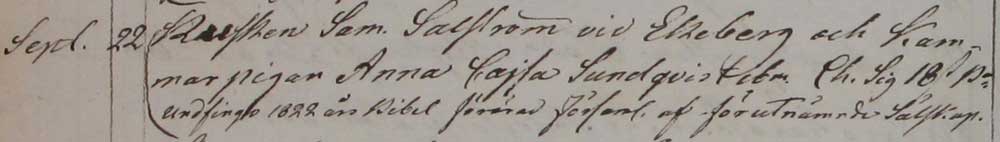 Sept. 22 Kusken Sam. Salström vid Ekeberg och Kam-
marpigan Anna Cajsa Sundqvist ibm. Ch. Sig 18
Undfingo 1822 års Bibel förärad Församl. af förutnämnde Sälskap.